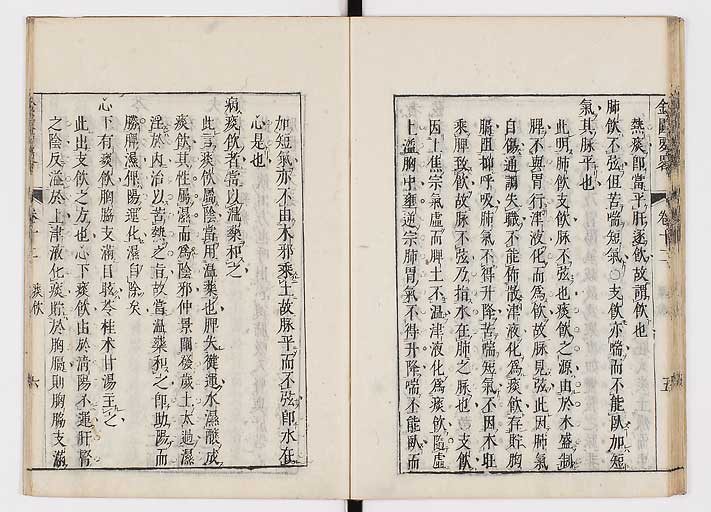 然痰卽當平肝逐飮故謂飮也
肺飮不弦但苦喘短氣○支飮亦喘而不能臥加短
氣其脉平也
此明肺飮支飮脉不弦也痰飮之源由於木盛制
脾不與胃行津液化而爲飮故脉見弦此因肺氣
自傷通調失職不能佈散津液化爲痰飮存貯胸
膈阻抑呼吸肺氣不得升降苦喘短氣不因木旺
乘脾致飮故脉不弦乃指水在肺之脉也支飮
因上焦宗氣虛而脾土不溫津液化爲痰飮隨虛
上溢胸中壅逆宗肺胃氣不得升降喘不能臥而
加短氣亦不由木邪乘土故脉平而不弦卽水在
心是也
病痰飮者當以溫藥和之
此言痰飮屬陰當用溫藥也脾失健運水濕釀成
痰飮其性屬濕而爲陰邪仲景開發歲土太過濕
淫於內治以苦熱之旨故當溫藥和之卽助陽而
勝脾濕俾陽運化濕自除矣
心下有痰飮胸脇支滿目眩苓桂术甘湯主之
此出支飮之方也心下痰飮由於淸陽不運肝腎
之陰反溢於上津液化痰貯於胸膈則胸脇支滿
卷十三
五
痰飮
六